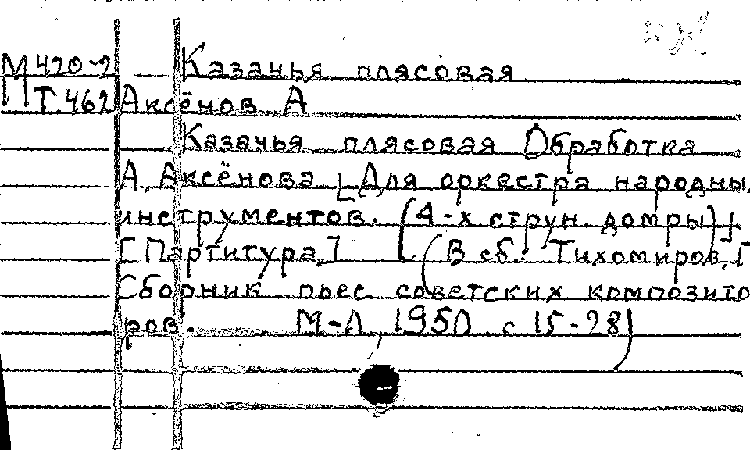 М 420-2 Казачья плясовая
Т.462 Аксёнов А
Казачья плясовая Обработка
А. Аксёнова [Для оркестра народны
инструментов. (4-х струн. домры)]
[Партитура.] (В сб.: Тихомиров, Г
Сборник пьес советских композито
ров. М-Л 1950 с 15-28)